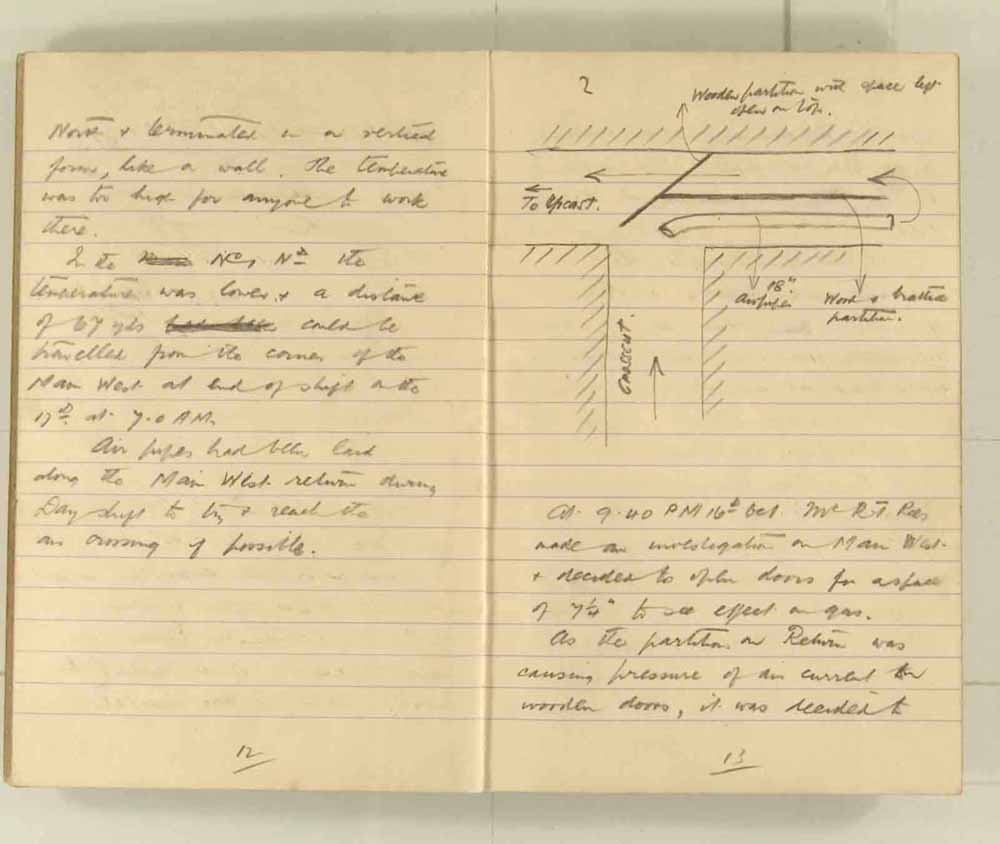 North & terminated in a vertical
form, like a wall. The temperature
was too high for anyone to work
there.
In the No 1 Nth the
temperature was lower & a distance
of 67 yds could be
travelled from the corner of the
Main West at end of shift on the
17th at 7.0 AM.
Air pipes had been laid
along the Main West return during
Day shift to try & reach the
air crossing if possible.
12
2
Wooden partition with space left
open on top.
To Upcast.
18"
Air pipes
Wood & brattice
partition.
At 9.40 PM 16th Oct. Mr R T Rees
made an investigation on Main West
& decided to open doors for a space
of 7½" to see effect on gas.
As the partition on Return was
causing pressure of air current
wooden doors, it was decided to
13